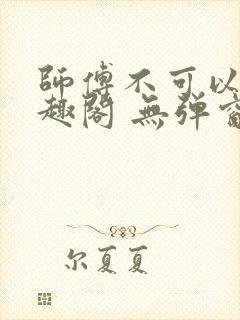 師傅不可以
趣閣 無彈窗
尔夏夏